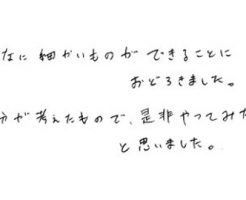 なに細かいものができることに
おどろきました。
方が考えたもので、是非やってみた
と思いました。